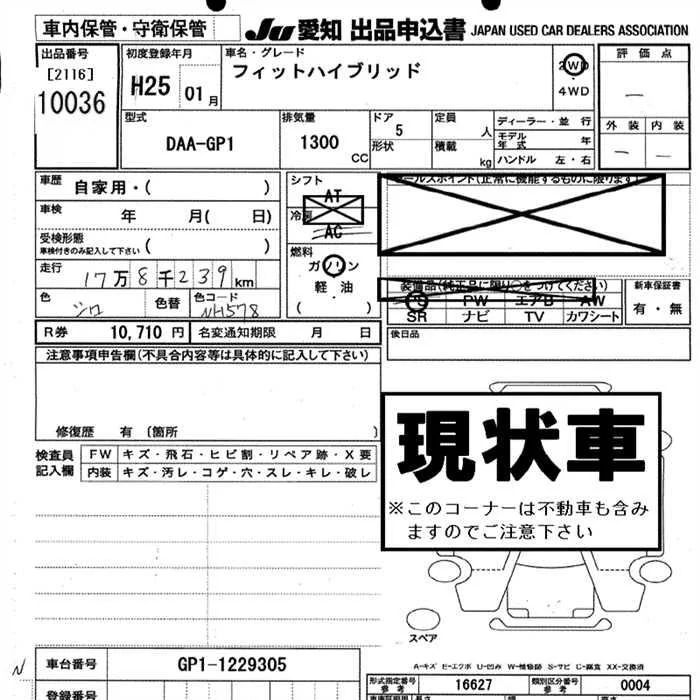 車内保管・守衛保管
JU 愛知 出品申込書 JAPAN USED CAR DEALERS ASSOCIATION
出品番号
[2116]
10036
初度登録年月
H25 01 月
車名・グレード
フィットハイブリッド
2WD
4WD
評価点
—
外装 内装
— —
型式
DAA-GP1
排気量
1300 CC
ドア
5
形状
定員
人
積載
kg
ディーラー・並行
モデル年式 年
ハンドル 左・右
車歴 自家用・( )
車検 年 月( 日)
受検形態
車検付きのみ記入して下さい ( )
走行 17万8千239km
色 シロ
色替
色コード NH578
シフト
AT
冷房
AC
燃料
ガソリン
軽・油
( )
セールスポイント(正常に機能するものに限ります)
装備品(純正品に限り〇をつけてください)
PW エアB AW
SR ナビ TV カワシート
新車保証書
有・無
R券 10,710 円 名変通知期限 月 日
後日品
注意事項申告欄(不具合内容等は具体的に記入して下さい)
修復歴 有 〔箇所 〕
検査員記入欄
FW キズ・飛石・ヒビ割・リペア跡・X要
内装 キズ・汚レ・コゲ・穴・スレ・キレ・破レ
現状車
※このコーナーは不動車も含み
ますのでご注意下さい
スペア
A-キズ E-エクボ U-凹み W-補修跡 S-サビ C-腐食 XX-交換済
N
車台番号 GP1-1229305
形式指定番号 参考 16627 類別区分番号 参考 0004
登録番号